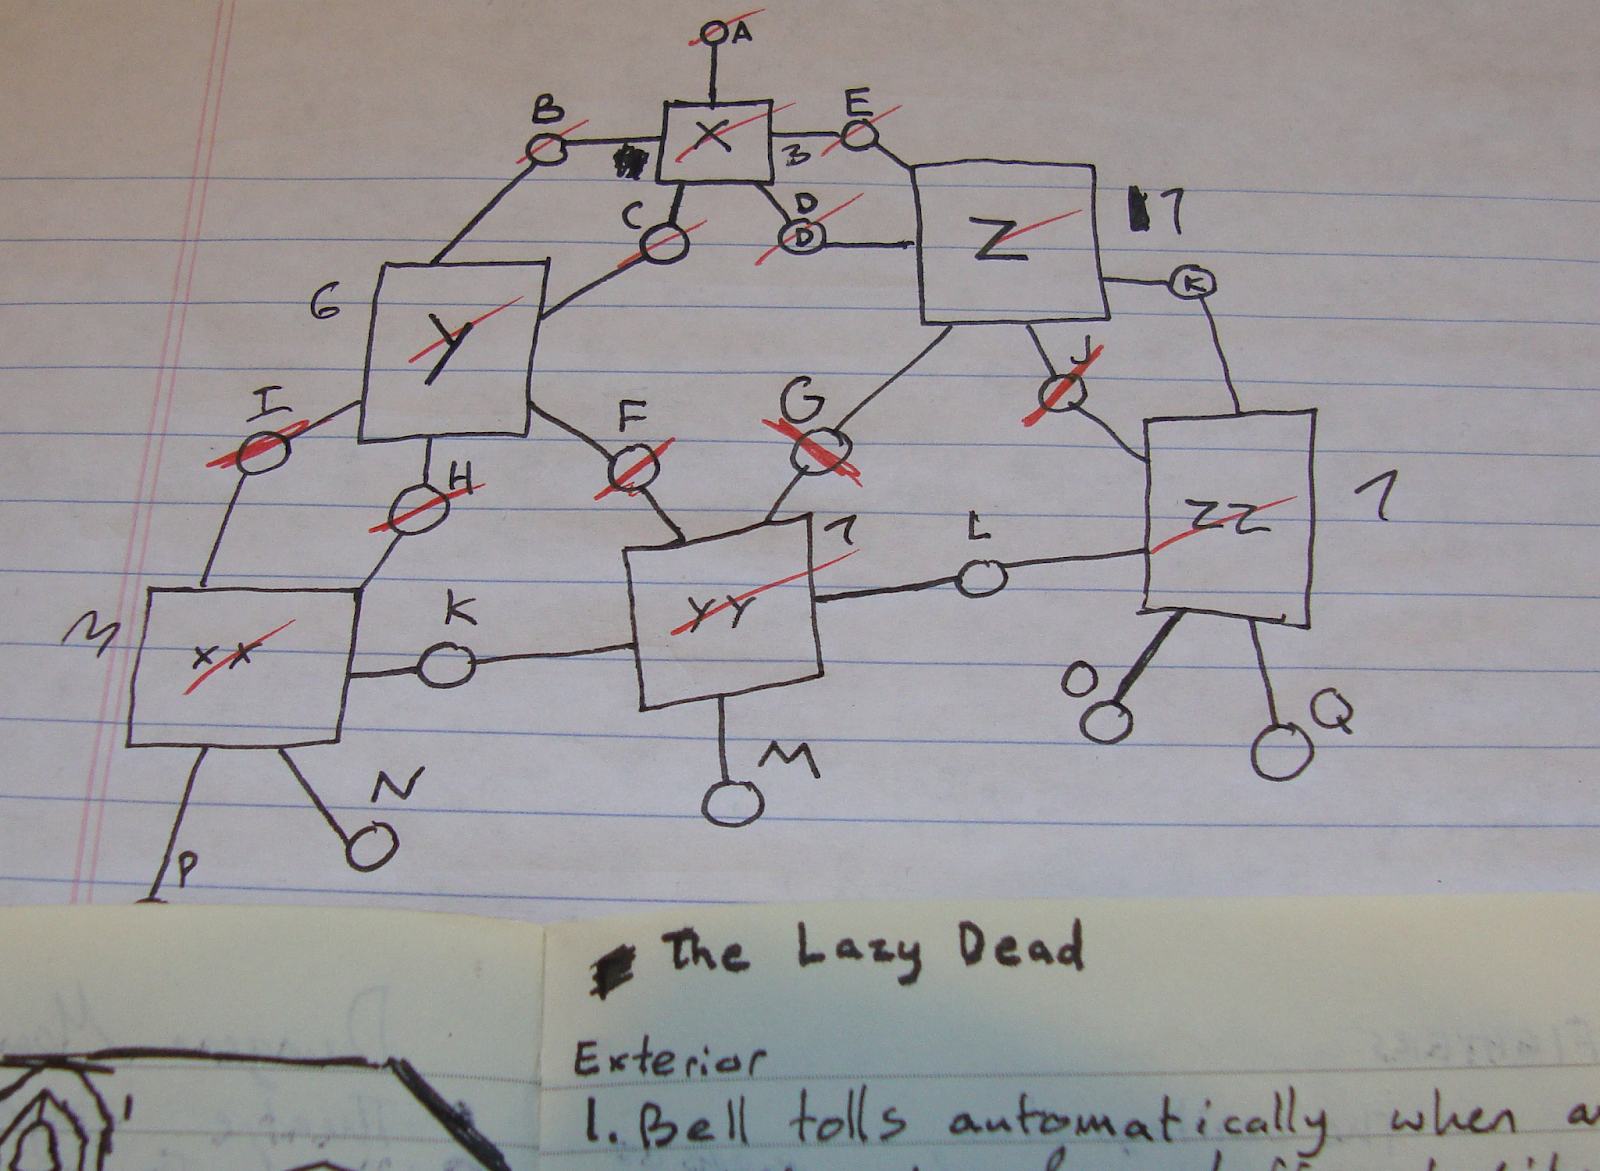 A
B
E
X
3
D
C
D
Z
1
K
6
Y
J
I
F
G
H
ZZ
1
1
L
YY
K
3
XX
O
Q
M
N
P
The Lazy Dead
Exterior
1. Bell tolls automatically when